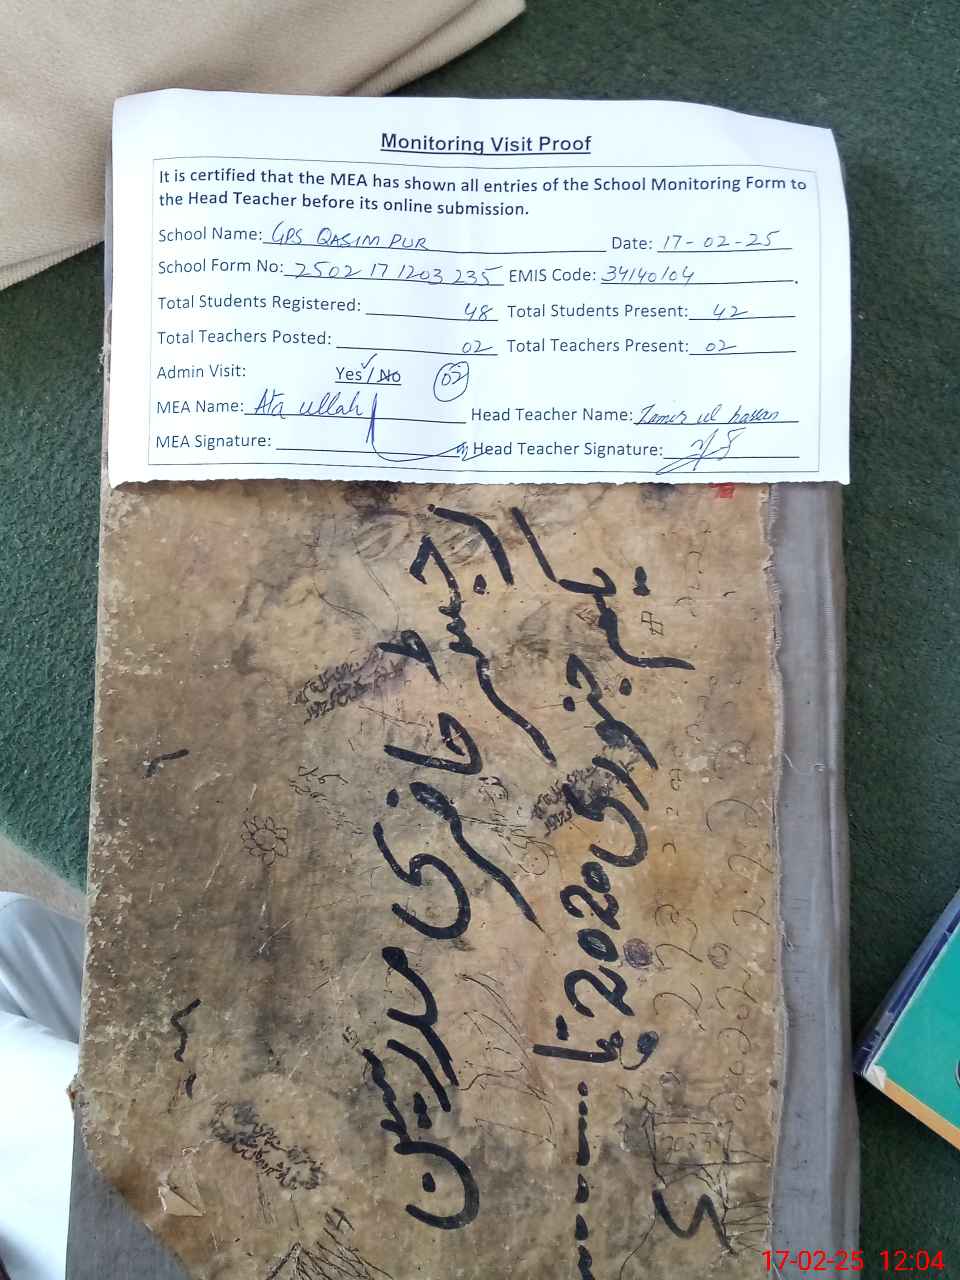 Monitoring Visit Proof
It is certified that the MEA has shown all entries of the School Monitoring Form to
the Head Teacher before its online submission.
School Name: GPS QASIM PUR Date: 17-02-25
School Form No: 2502 17 1203 235 EMIS Code: 34140104.
Total Students Registered: 48 Total Students Present: 42
Total Teachers Posted: 02 Total Teachers Present: 02
Admin Visit: Yes/No 02
MEA Name: Ata ullah Head Teacher Name: ul hassan
MEA Signature: Head Teacher Signature:
رجسٹر حاضری مدرسین
یکم جنوری 2020 تا
17-02-25 12:04